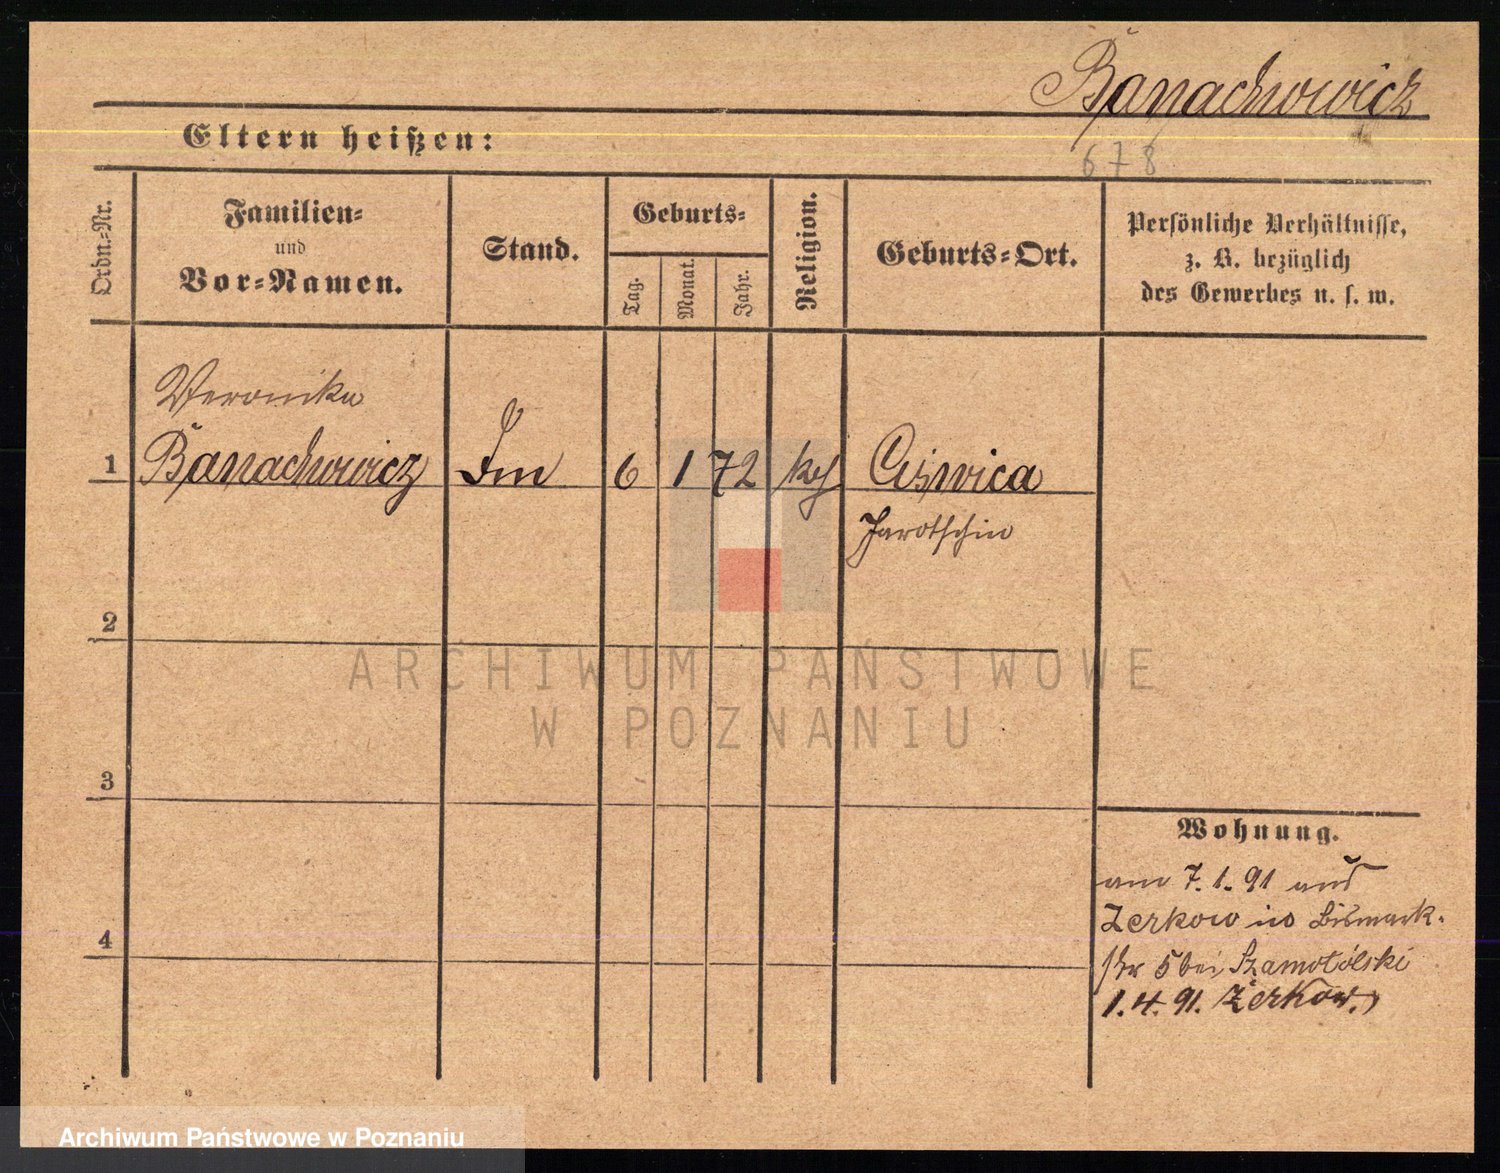 Banachowicz
Eltern heißen:
678
Ordn.-Nr.
Familien-
und
Vor-Namen.
Stand.
Geburts-
Tag.
Monat.
Jahr.
Religion.
Geburts-Ort.
Persönliche Verhältnisse,
z. B. bezüglich
des Gewerbes u. s. w.
Veronika
1 Banachowicz 6 1 72 Ciświca
Jarotschin
2
3
4
Wohnung.
am 7.1.91 aus
Zerkow in Bismark-
str 5 bei Szamotólski
1.4.91. Zerkow.
ARCHIWUM PAŃSTWOWE
W POZNANIU
Archiwum Państwowe w Poznaniu